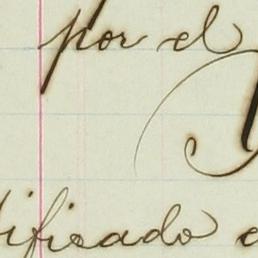 por el
ificado